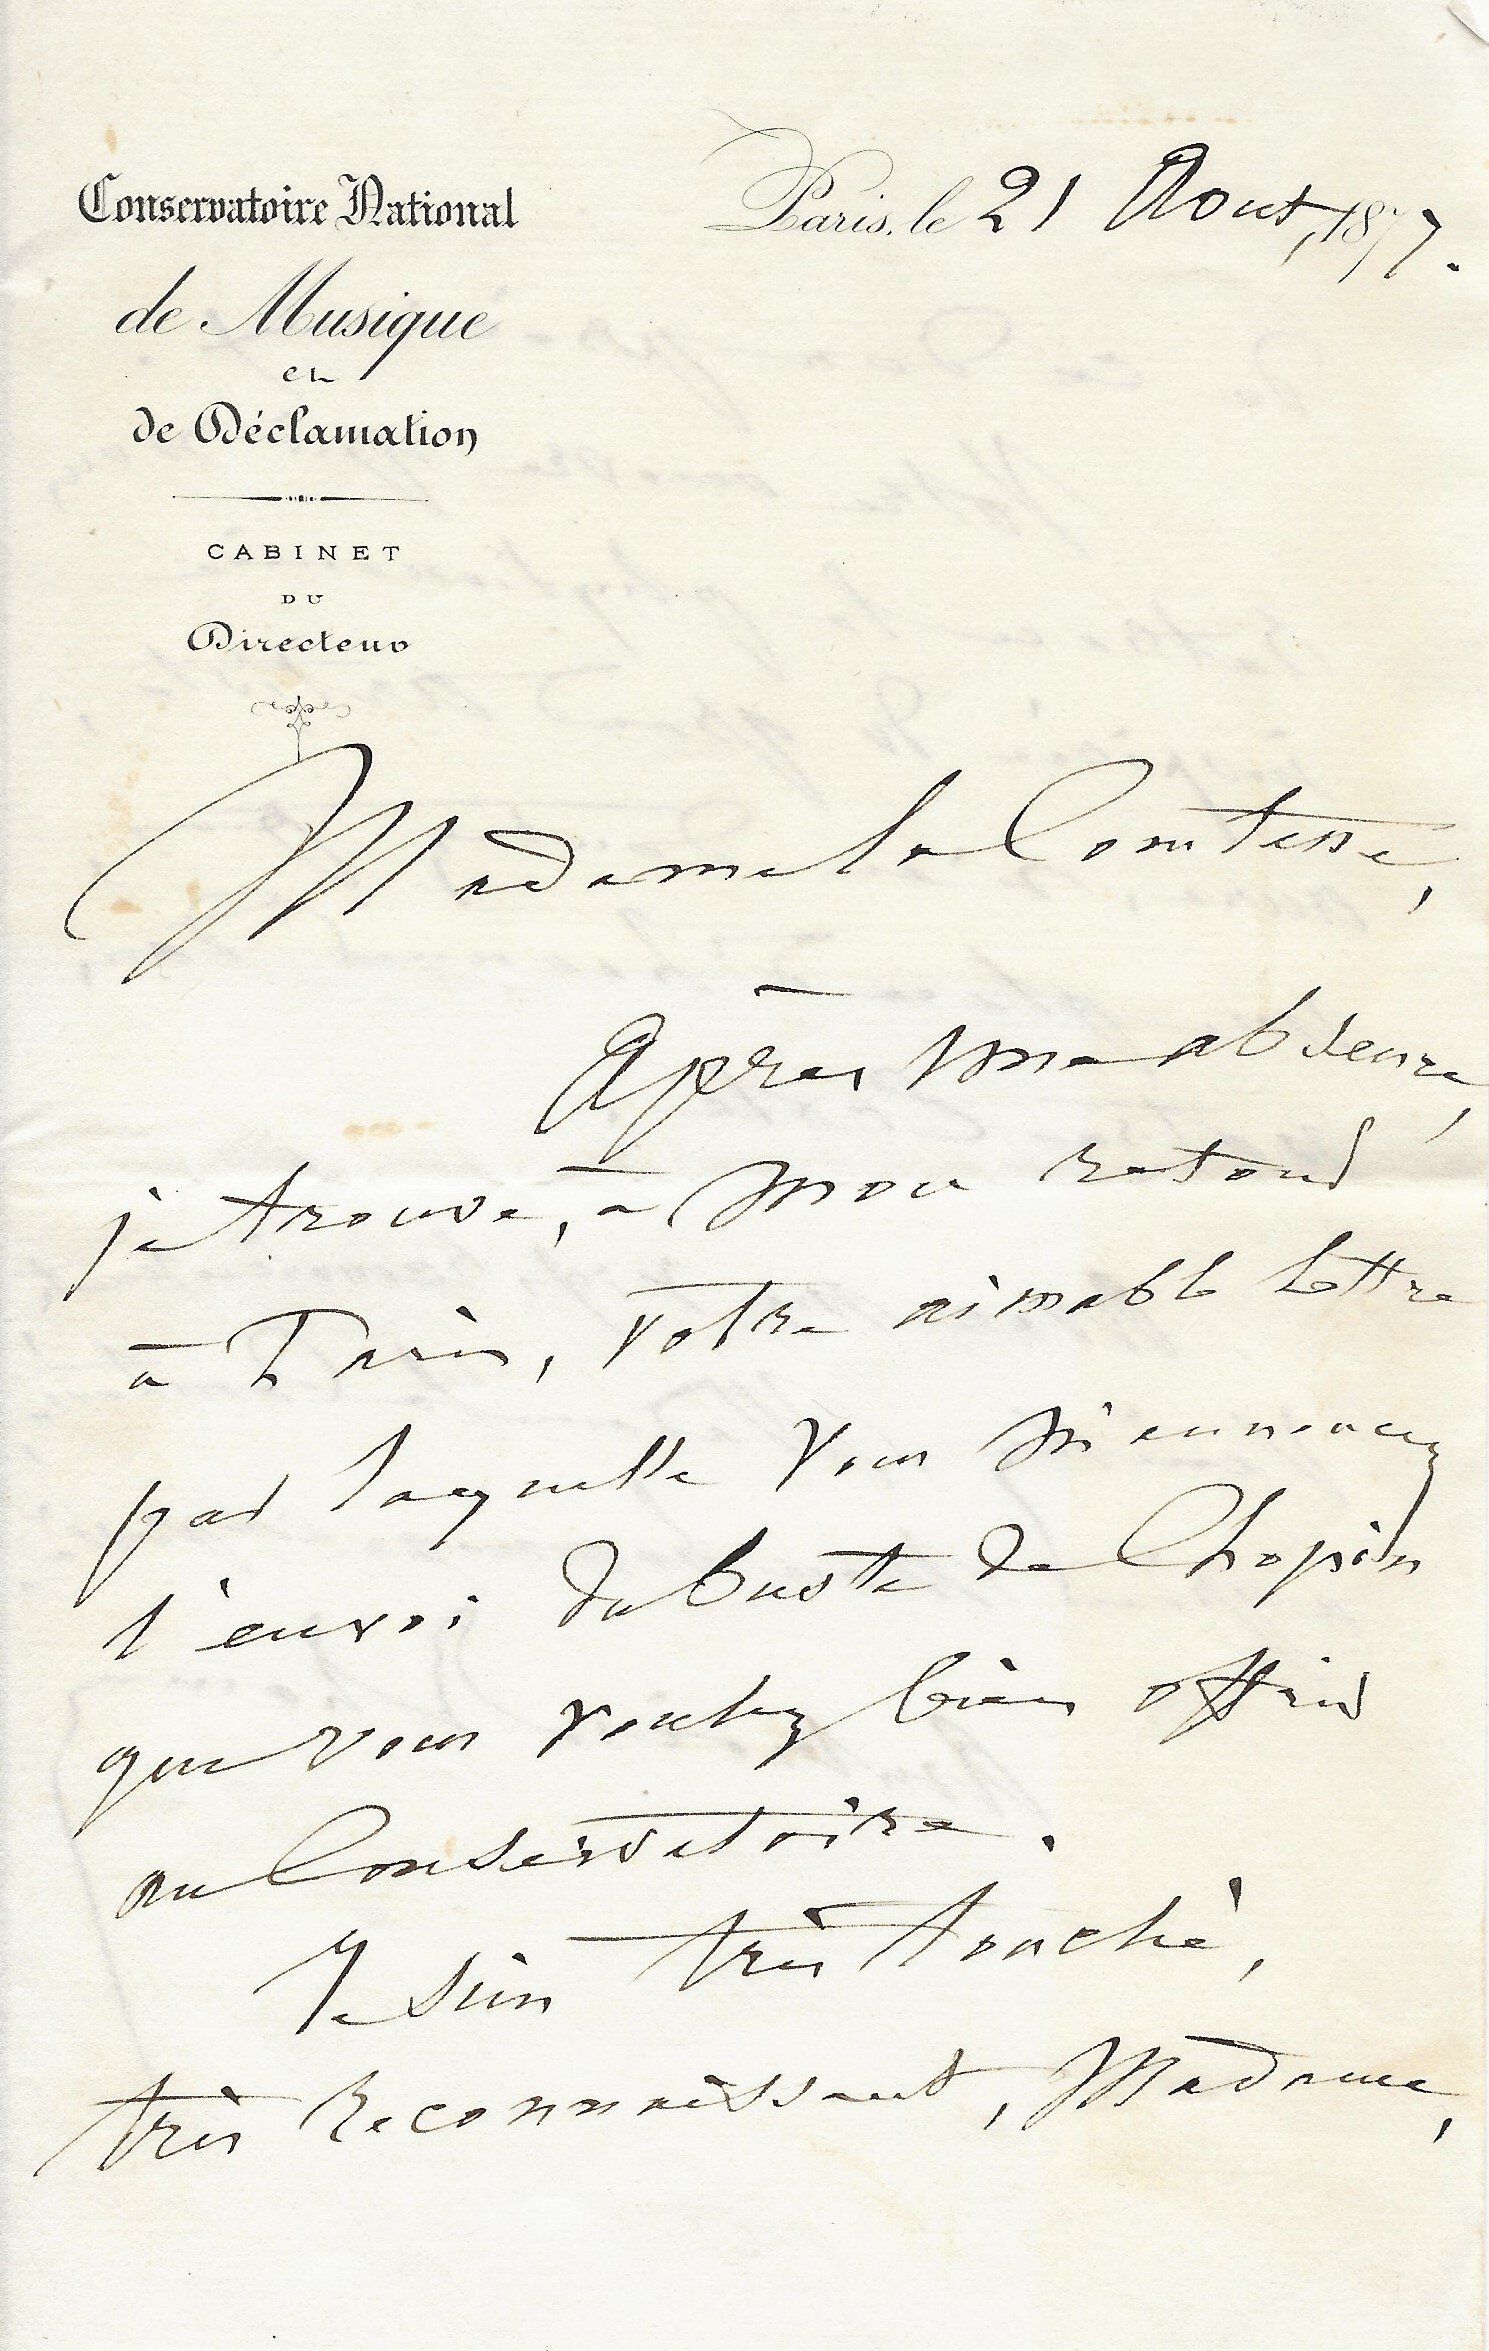 Conservatoire National
de Musique
et
de Déclamation
CABINET
DU
Directeur
Paris, le 21 Aout, 1877.
Madame la Comtesse,
Après une absence,
je trouve, à mon retour
à Paris, votre aimable lettre
par laquelle vous m'annoncez
l'envoi du buste de Chopin
que vous voulez bien offrir
au Conservatoire.
Je suis très touché,
très reconnaissant, Madame,